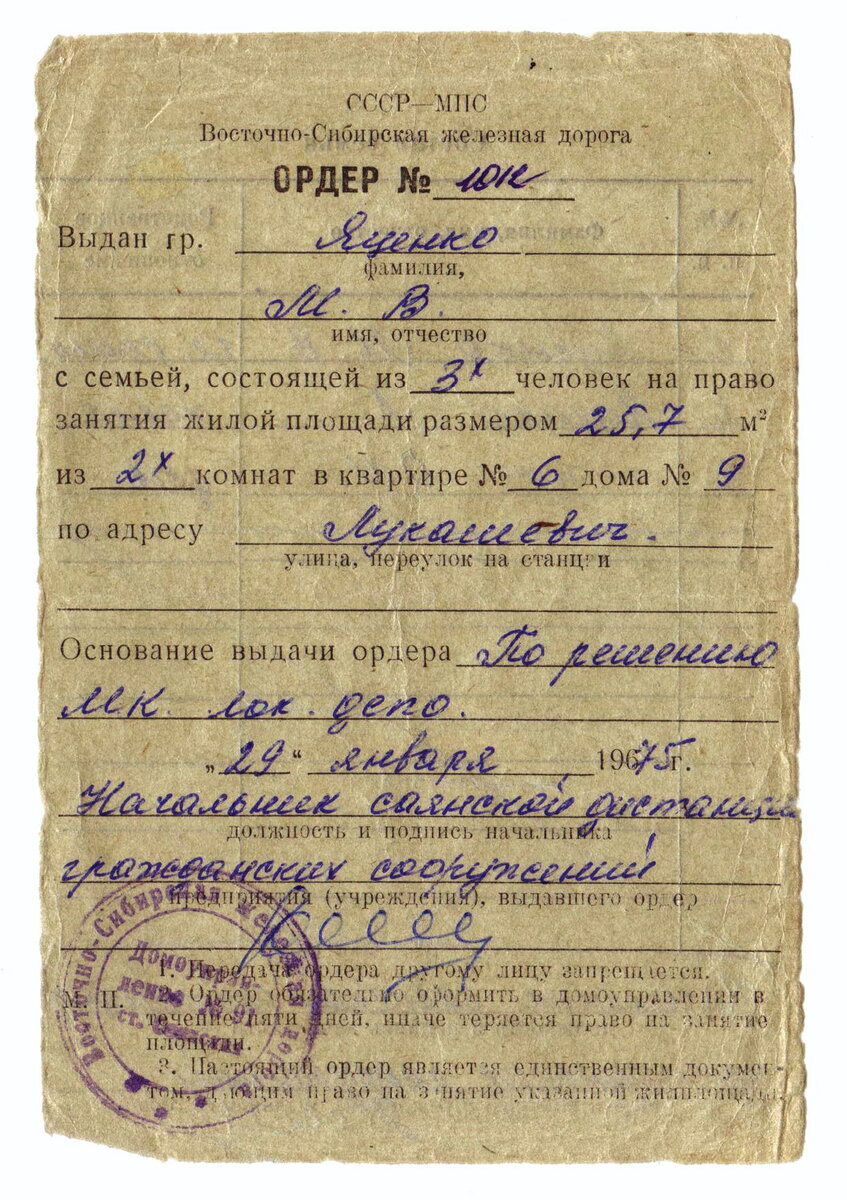 СССР—МПС
Восточно-Сибирская железная дорога
ОРДЕР №
Выдан гр. Яценко
фамилия,
М. В.
имя, отчество
с семьей, состоящей из 3х человек на право
занятия жилой площади размером 25,7 м²
из 2х комнат в квартире № 6 дома № 9
по адресу Лукашевич.
улица, переулок на станции
Основание выдачи ордера По решению
МК. лок. депо.
„29“ января 1975г.
Начальник саянской дистанции
должность и подпись начальника
гражданских сооружений
предприятия (учреждения), выдавшего ордер
1. Передача ордера другому лицу запрещается.
М. П. 2. Ордер обязательно оформить в домоуправлении в
течение пяти дней, иначе теряется право на занятие
площади.
3. Настоящий ордер является единственным докумен-
том, дающим право на занятие указанной жилплощади.
Восточно-Сибирская железная дорога
Домоуправ-
ление
ст.